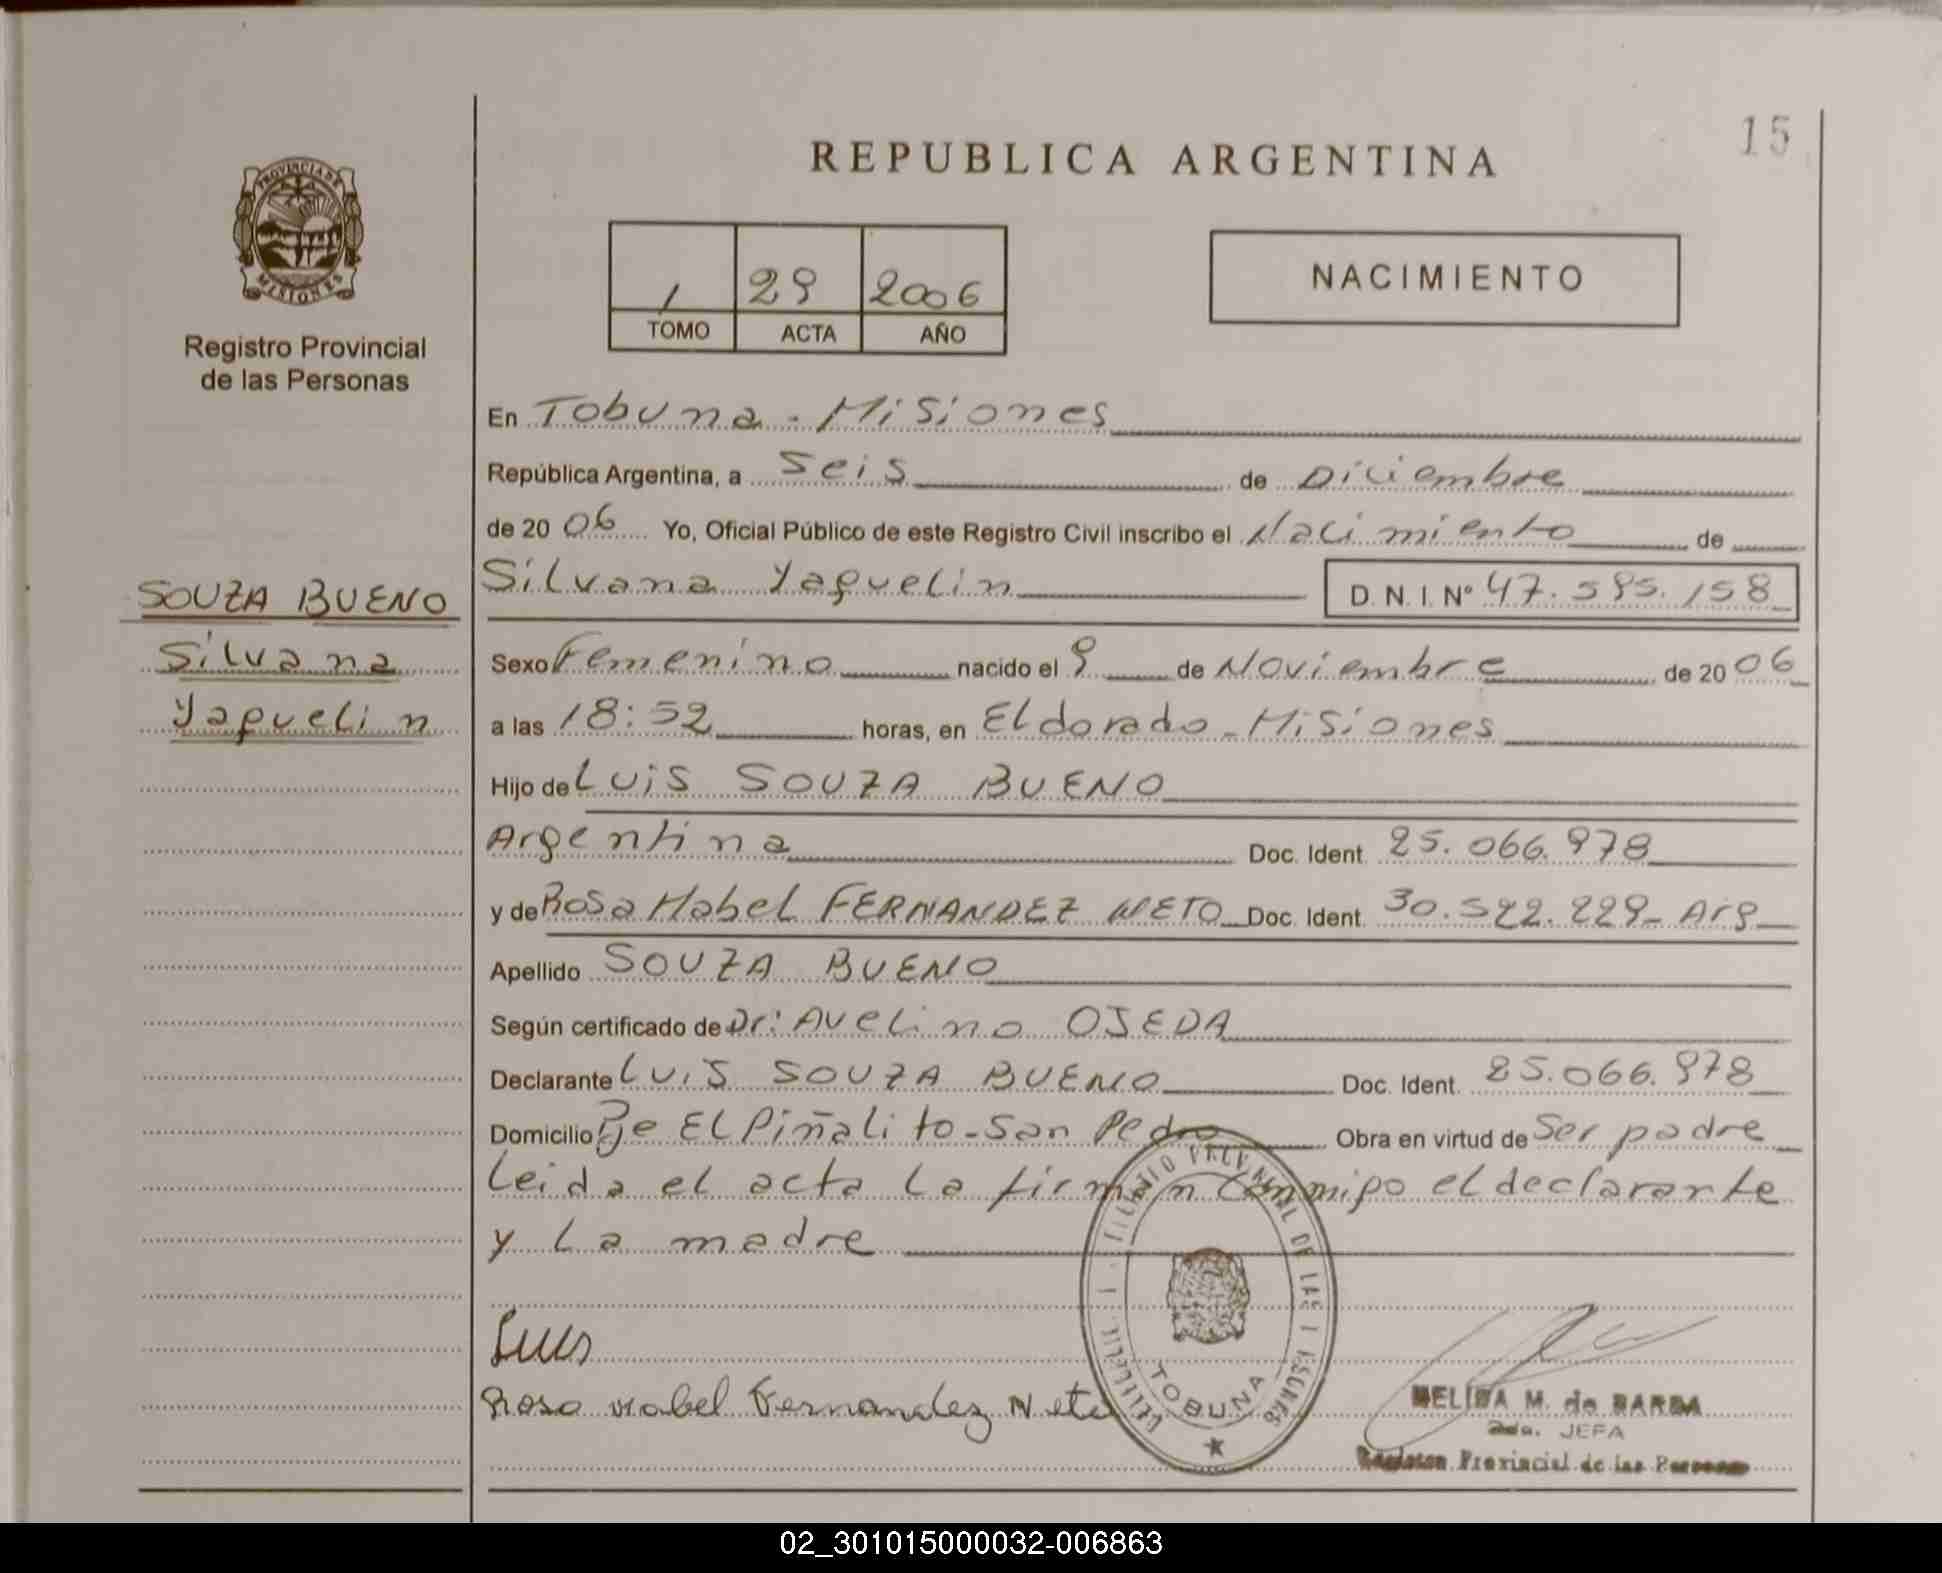 15
REPUBLICA ARGENTINA
PROVINCIA DE
MISIONES
Registro Provincial
de las Personas
1 29 2006
TOMO ACTA AÑO
NACIMIENTO
En Tobuna - Misiones
República Argentina, a Seis de Diciembre
de 20 06 Yo, Oficial Público de este Registro Civil inscribo el Nacimiento de
Silvana Yaquelin D. N. I. Nº 47.595.158
SOUZA BUENO
Silvana
Yaquelin
Sexo Femenino nacido el 9 de Noviembre de 20 06
a las 18:52 horas, en Eldorado - Misiones
Hijo de Luis SOUZA BUENO
Argentina Doc. Ident. 25.066.978
y de Rosa Mabel FERNANDEZ NETO Doc. Ident. 30.522.229- Arg
Apellido SOUZA BUENO
Según certificado de Dr: Avelino OJEDA
Declarante Luis SOUZA BUENO Doc. Ident. 25.066.978
Domicilio Pje El Piñalito - San Pedro Obra en virtud de Ser padre
Leida el acta la firman conmigo el declarante
y la madre
Luis
Rosa Mabel Fernandez Neto
TOBUNA
MELIDA M. de BARBA
2da. JEFA
Provincial de las Personas
02_301015000032-006863